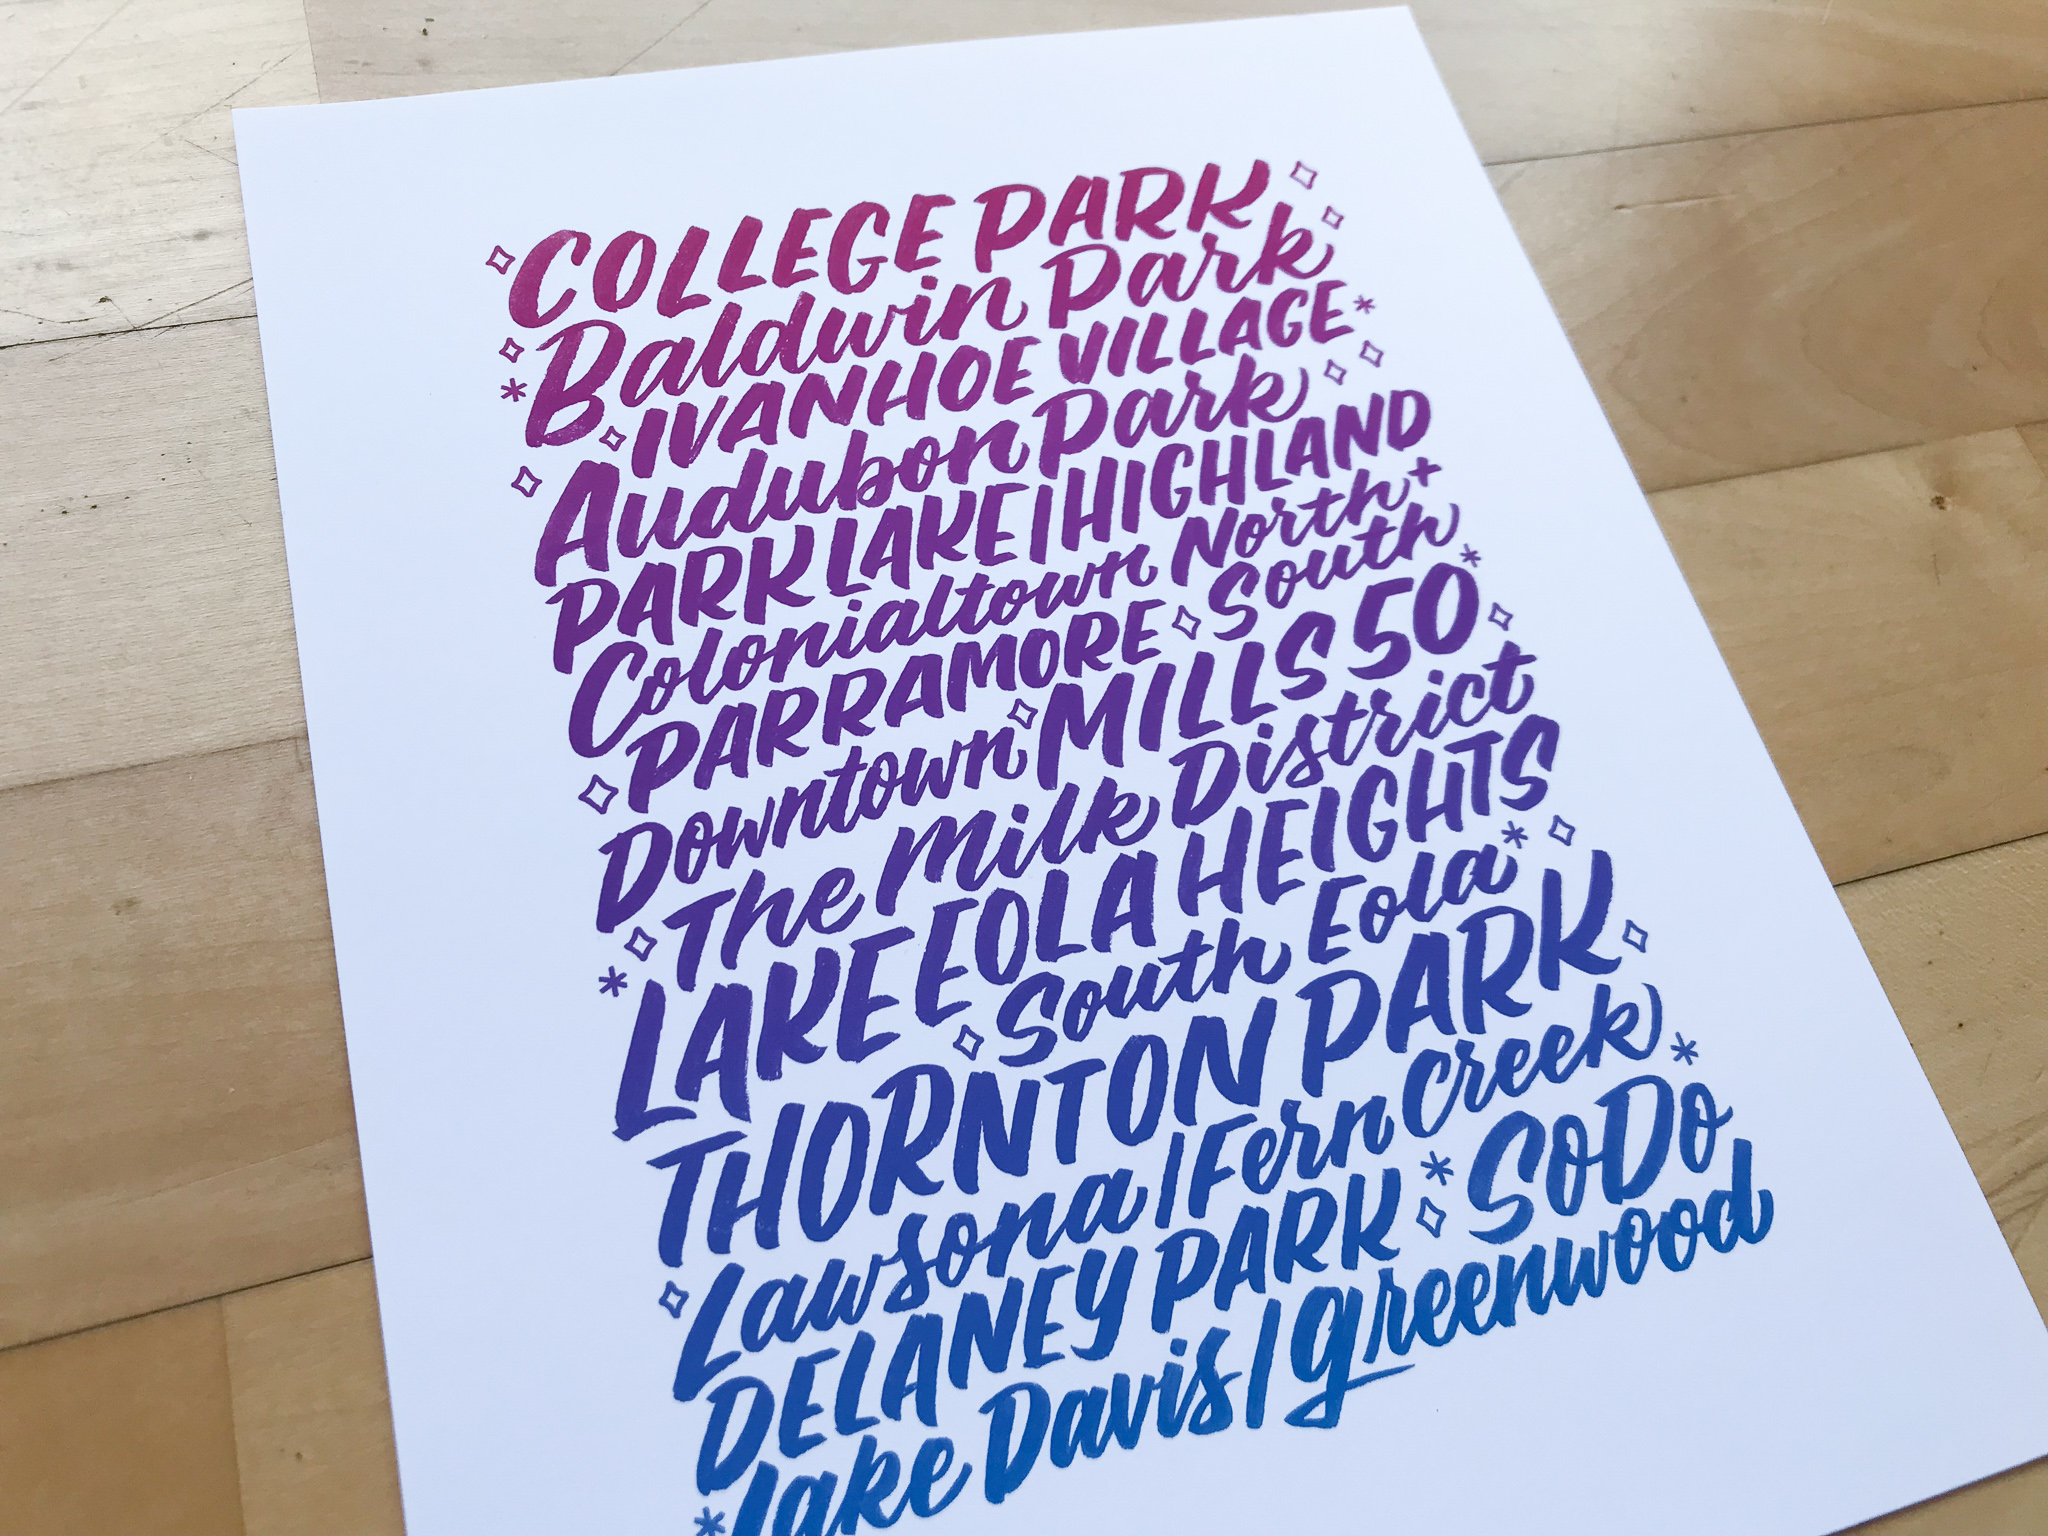 COLLEGE PARK
Baldwin Park
IVANHOE VILLAGE
Audubon Park
PARK LAKE | HIGHLAND
Colonialtown North +
PARRAMORE South
Downtown MILLS 50
The Milk District
LAKE EOLA HEIGHTS
South Eola
THORNTON PARK
Lawsona | Fern Creek
DELANEY PARK SoDo
Lake Davis | greenwood